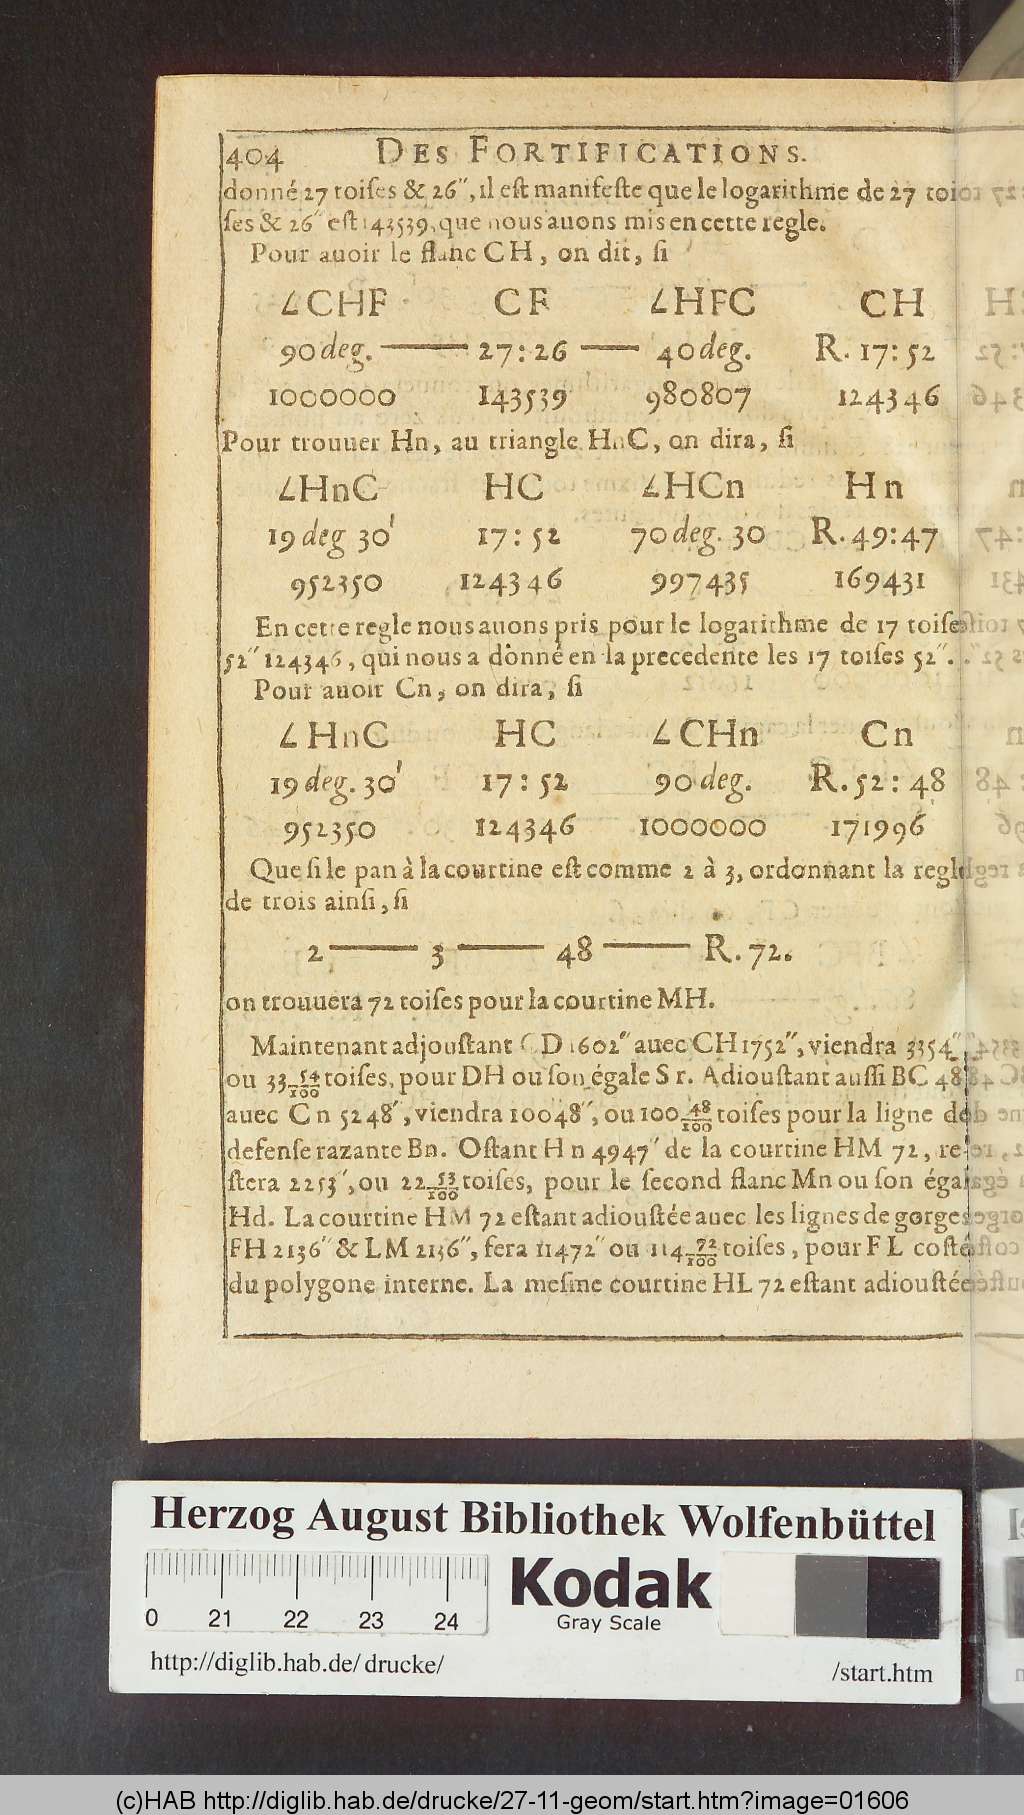 404 DES FORTIFICATIONS.
donné 27 toiſes & 26″, il eſt manifeſte que le logarithme de 27 toi-
ſes & 26″ eſt 143539, que nous auons mis en cette regle.
Pour auoir le flanc CH, on dit, ſi
∠CHF CF ∠HFC CH
90 deg. —— 27:26 —— 40 deg. R. 17:52
1000000 143539 980807 124346
Pour trouuer Hn, au triangle HnC, on dira, ſi
∠HnC HC ∠HCn Hn
19 deg 30′ 17:52 70 deg. 30 R. 49:47
952350 124346 997435 169431
En cette regle nous auons pris pour le logarithme de 17 toiſes
52″ 124346, qui nous a donné en la precedente les 17 toiſes 52″.
Pour auoir Cn, on dira, ſi
∠HnC HC ∠CHn Cn
19 deg. 30′ 17:52 90 deg. R. 52:48
952350 124346 1000000 171996
Que ſi le pan à la courtine eſt comme 2 à 3, ordonnant la regle
de trois ainſi, ſi
2 —— 3 —— 48 —— R. 72.
on trouuera 72 toiſes pour la courtine MH.
Maintenant adjouſtant CD 1602″ auec CH 1752″, viendra 3354″,
ou 33 54/100 toiſes, pour DH ou ſon égale S r. Adiouſtant auſſi BC 48
auec Cn 5248″, viendra 10048″, ou 100 48/100 toiſes pour la ligne de
defenſe razante Bn. Oſtant Hn 4947″ de la courtine HM 72, re-
ſtera 2253″, ou 22 53/100 toiſes, pour le ſecond flanc Mn ou ſon égale
Hd. La courtine HM 72 eſtant adiouſtée auec les lignes de gorges
FH 2136″ & LM 2136″, fera 11472″ ou 114 72/100 toiſes, pour FL coſté
du polygone interne. La meſme courtine HL 72 eſtant adiouſtée
Herzog August Bibliothek Wolfenbüttel
Kodak
Gray Scale
0 21 22 23 24
http://diglib.hab.de/drucke/ /start.htm
(c)HAB http://diglib.hab.de/drucke/27-11-geom/start.htm?image=01606